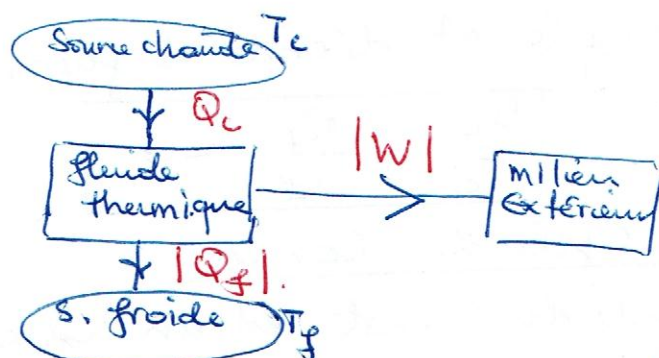 Source chaude Tc
Qc
fluide
thermique
|W|
milieu
extérieur
|Qf|.
s. froide Tf